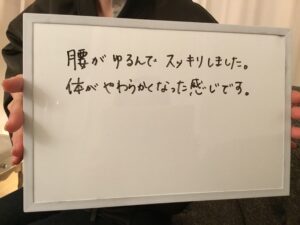 腰がゆるんで スッキリしました。
体がやわらかくなった感じです。